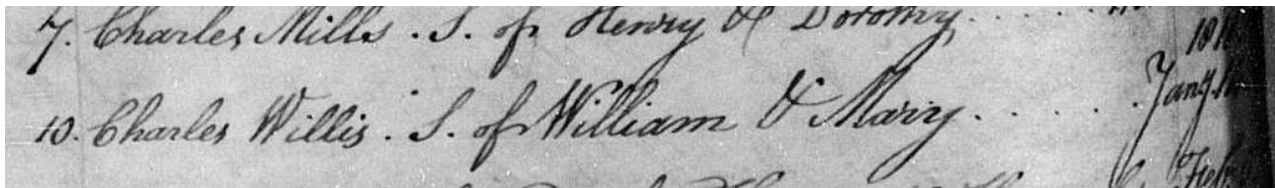 7. Charles Mills. S. of Henry & Dorothy
10. Charles Willis. S. of William & Mary